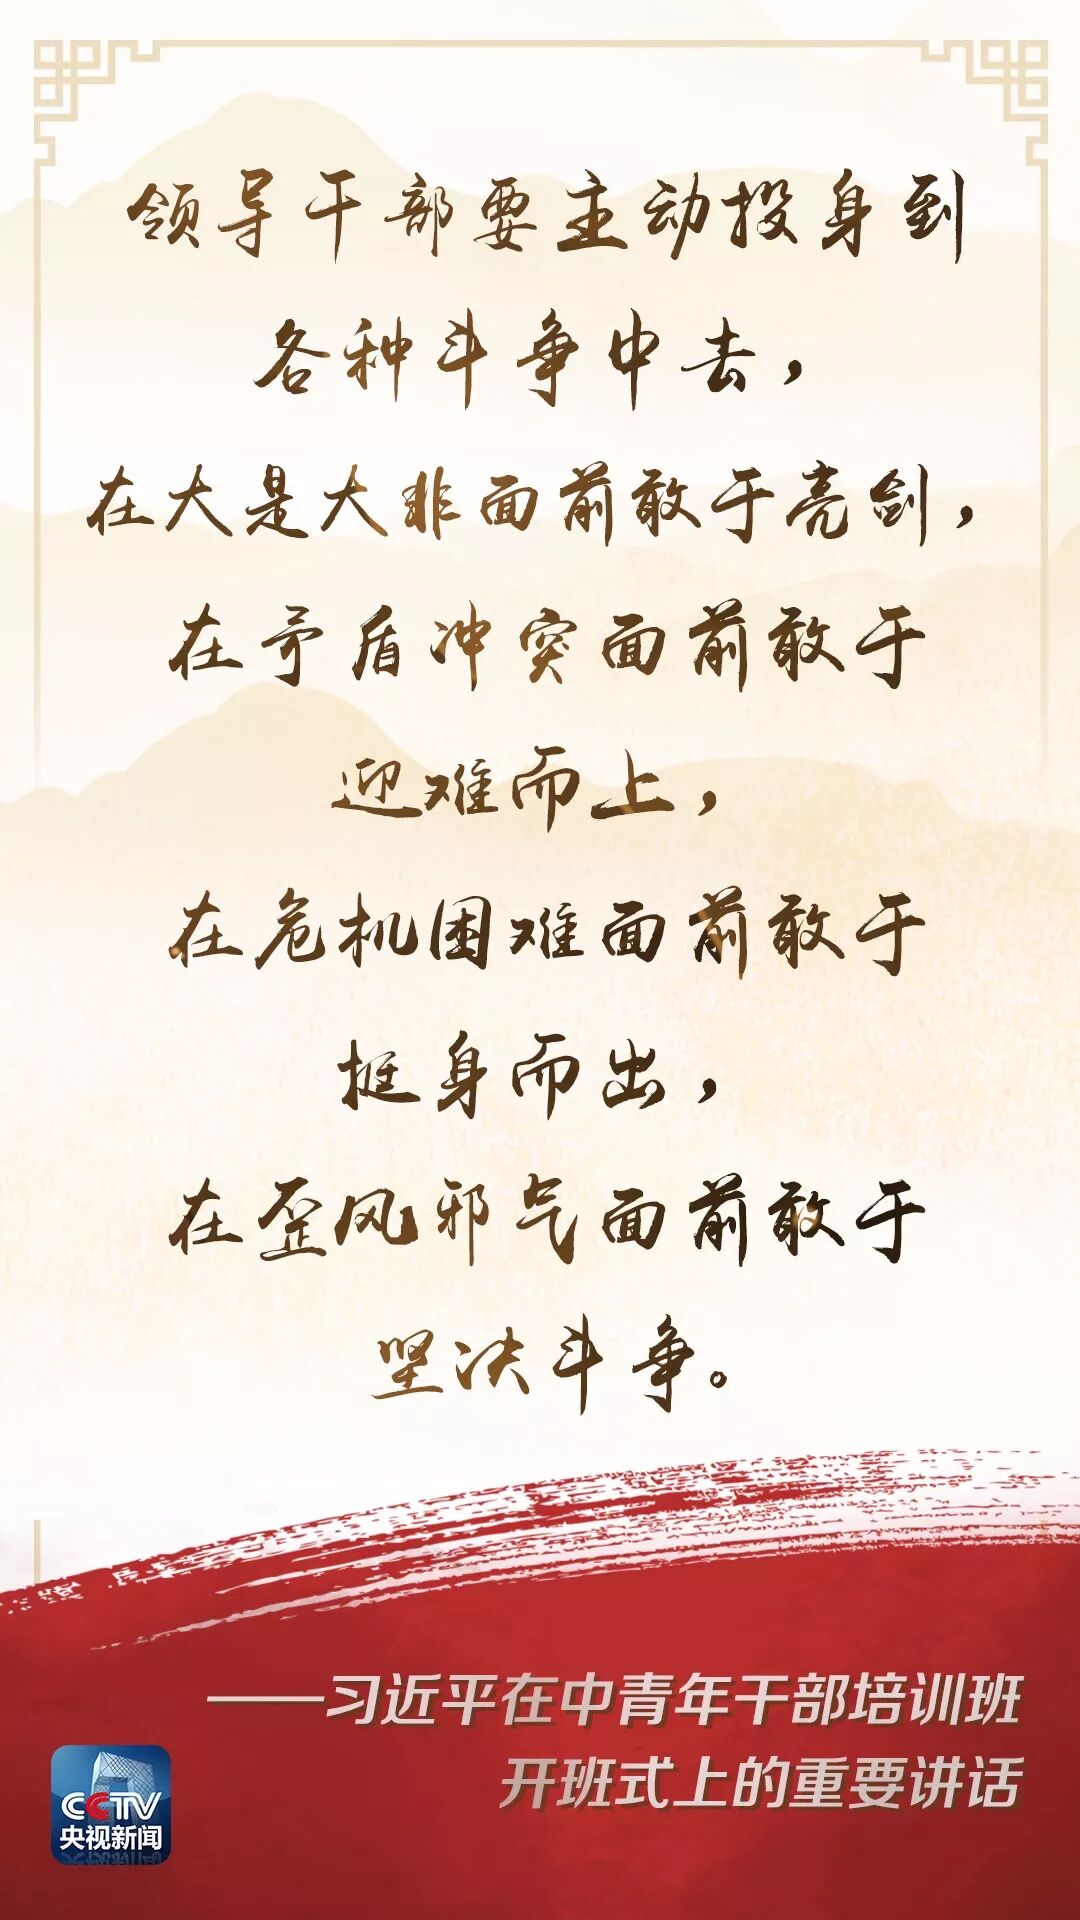 领导干部要主动投身到
各种斗争中去，
在大是大非面前敢于亮剑，
在矛盾冲突面前敢于
迎难而上，
在危机困难面前敢于
挺身而出，
在歪风邪气面前敢于
坚决斗争。
——习近平在中青年干部培训班
开班式上的重要讲话
CCTV
央视新闻